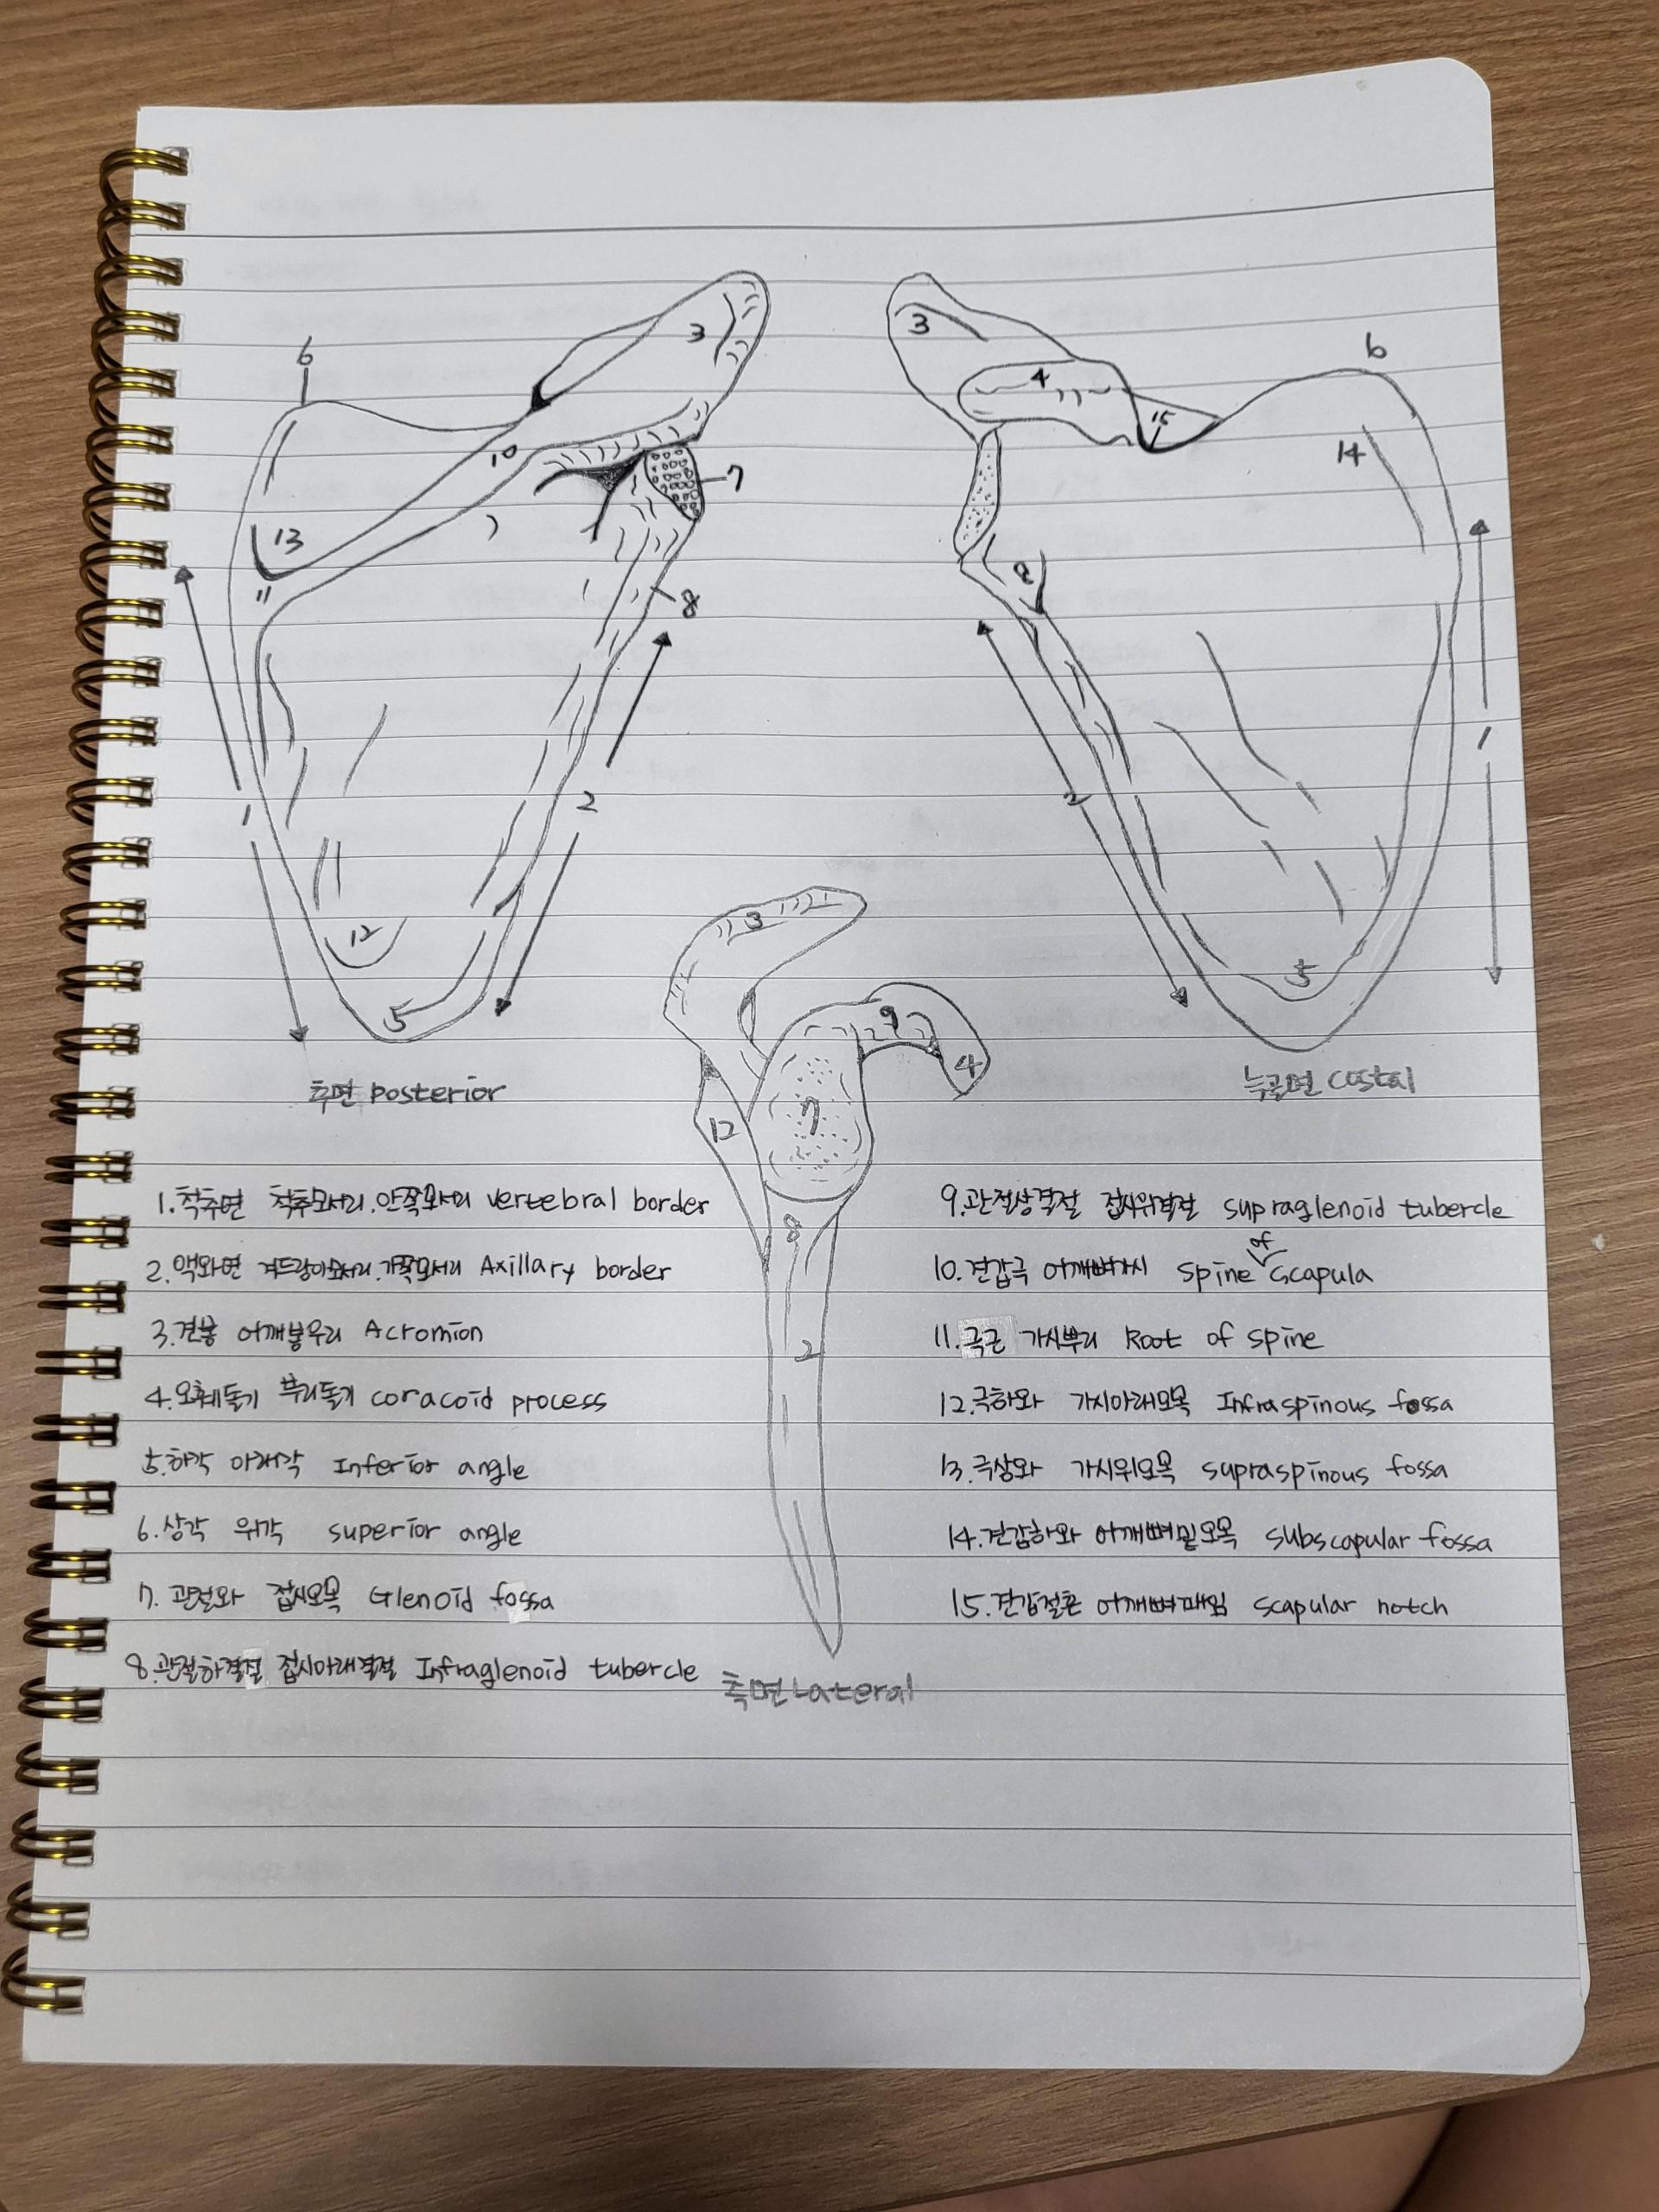 6
3
10
7
13
11
8
1
2
12
5
후면 posterior
3
4
6
15
14
8
2
1
5
늑골면 costal
3
9
4
7
12
8
2
측면 Lateral
1.척추연 척추모서리.안쪽모서리 vertebral border
2.액와연 겨드랑이모서리.가쪽모서리 Axillary border
3.견봉 어깨봉우리 Acromion
4.오훼돌기 부리돌기 coracoid process
5.하각 아래각 Inferior angle
6.상각 위각 superior angle
7.관절와 접시오목 Glenoid fossa
8.관절하결절 접시아래결절 Infraglenoid tubercle
9.관절상결절 접시위결절 supraglenoid tubercle
10.견갑극 어깨뼈가시 spine of scapula
11.극근 가시뿌리 Root of spine
12.극하와 가시아래오목 Infraspinous fossa
13.극상와 가시위오목 supraspinous fossa
14.견갑하와 어깨뼈밑오목 subscapular fossa
15.견갑절흔 어깨뼈패임 scapular notch